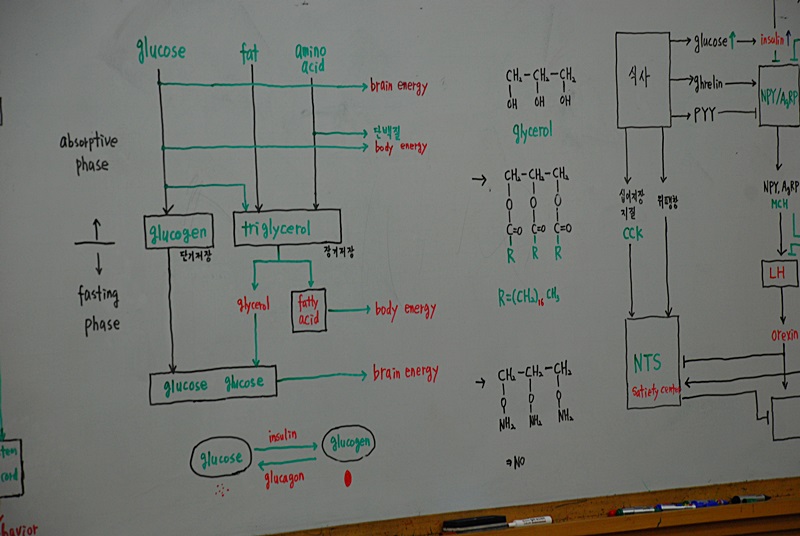 glucose
fat
amino
acid
brain energy
단백질
body energy
absorptive
phase
glucogen
단기저장
triglycerol
장기저장
fasting
phase
glycerol
fatty
acid
body energy
glucose glucose
brain energy
glucose
insulin
glucagon
glucogen
CH₂-CH₂-CH₂
OH OH OH
glycerol
→ CH₂-CH₂-CH₂
O O O
C=O C=O C=O
R R R
R=(CH₂)₁₆CH₃
→ CH₂-CH₂-CH₂
O O O
NH₂ NH₂ NH₂
⇒NO
식사
glucose↑
insulin↑
ghrelin
PYY
NPY/AgRP
십이지장
지질
CCK
위팽창
NPY, AgRP
MCH
LH
orexin
NTS
Satiety center
cord
havior